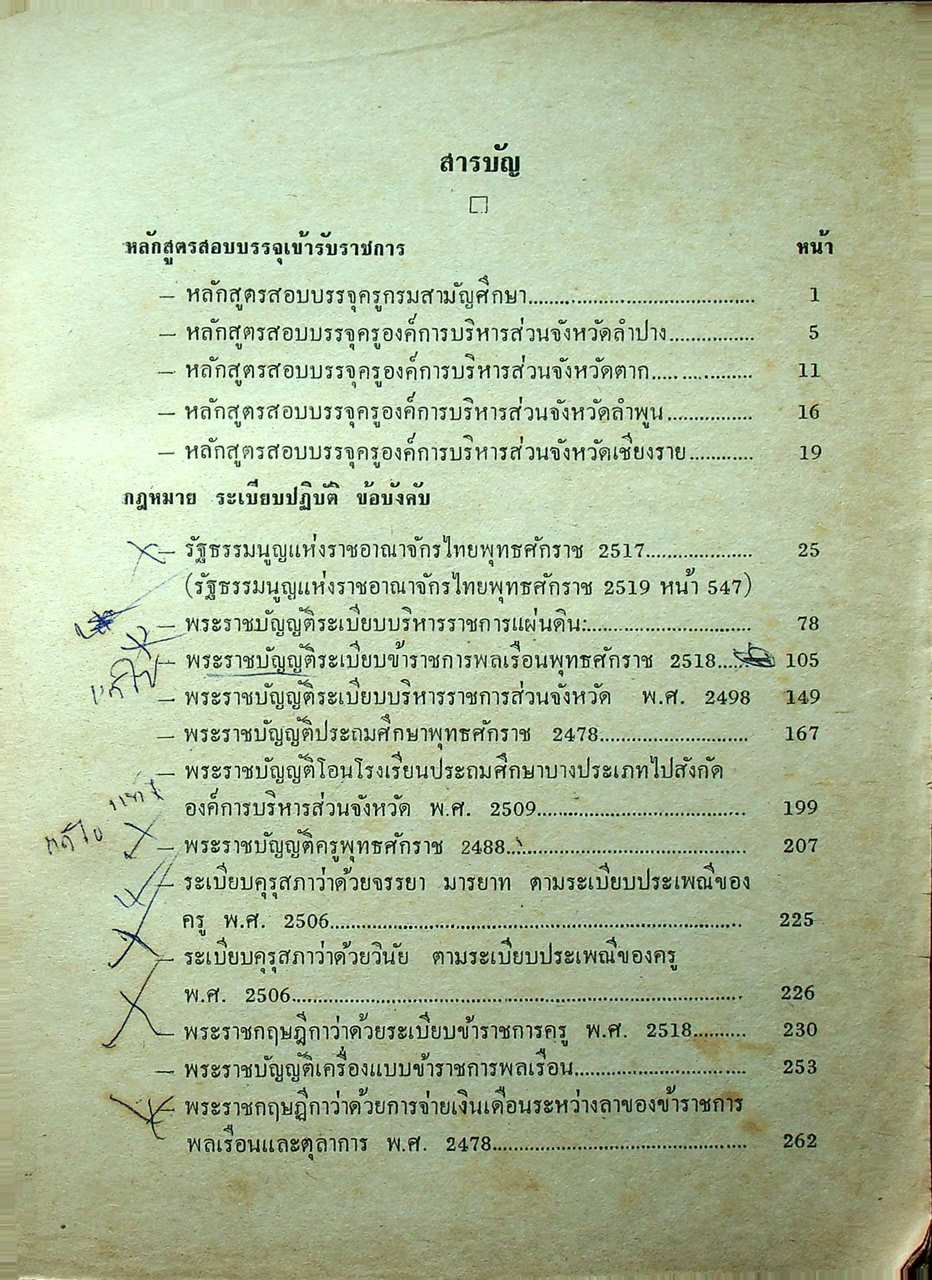 สารบัญ
หลักสูตรสอบบรรจุเข้ารับราชการ หน้า
— หลักสูตรสอบบรรจุครูกรมสามัญศึกษา........................................ 1
— หลักสูตรสอบบรรจุครูองค์การบริหารส่วนจังหวัดลำปาง................ 5
— หลักสูตรสอบบรรจุครูองค์การบริหารส่วนจังหวัดตาก................... 11
— หลักสูตรสอบบรรจุครูองค์การบริหารส่วนจังหวัดลำพูน................ 16
— หลักสูตรสอบบรรจุครูองค์การบริหารส่วนจังหวัดเชียงราย............ 19
กฎหมาย ระเบียบปฏิบัติ ข้อบังคับ
— รัฐธรรมนูญแห่งราชอาณาจักรไทยพุทธศักราช 2517.................... 25
(รัฐธรรมนูญแห่งราชอาณาจักรไทยพุทธศักราช 2519 หน้า 547)
— พระราชบัญญัติระเบียบบริหารราชการแผ่นดิน.............................. 78
— พระราชบัญญัติระเบียบข้าราชการพลเรือนพุทธศักราช 2518...... 105
แก้ไข
— พระราชบัญญัติระเบียบบริหารราชการส่วนจังหวัด พ.ศ. 2498 149
— พระราชบัญญัติประถมศึกษาพุทธศักราช 2478............................ 167
— พระราชบัญญัติโอนโรงเรียนประถมศึกษาบางประเภทไปสังกัด
องค์การบริหารส่วนจังหวัด พ.ศ. 2509....................................... 199
— พระราชบัญญัติครูพุทธศักราช 2488............................................. 207
— ระเบียบคุรุสภาว่าด้วยจรรยา มารยาท ตามระเบียบประเพณีของ
ครู พ.ศ. 2506............................................................................. 225
— ระเบียบคุรุสภาว่าด้วยวินัย ตามระเบียบประเพณีของครู
พ.ศ. 2506.................................................................................... 226
— พระราชกฤษฎีกาว่าด้วยระเบียบข้าราชการครู พ.ศ. 2518.......... 230
— พระราชบัญญัติเครื่องแบบข้าราชการพลเรือน................................ 253
— พระราชกฤษฎีกาว่าด้วยการจ่ายเงินเดือนระหว่างลาของข้าราชการ
พลเรือนและตุลาการ พ.ศ. 2478................................................ 262